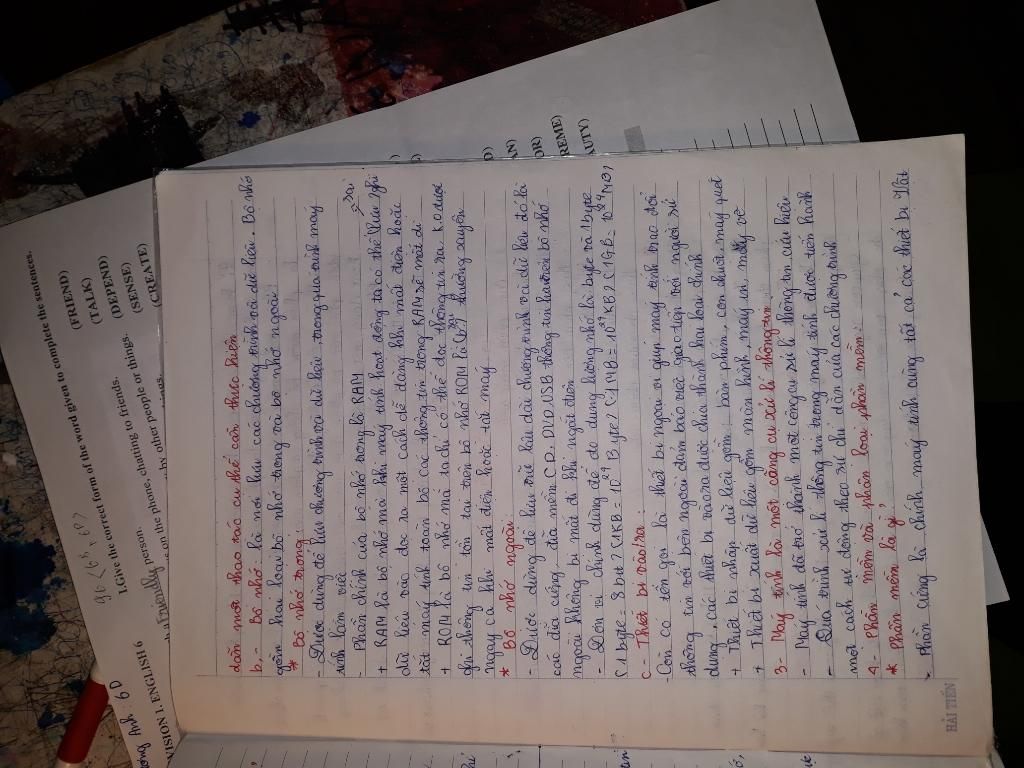 dẫn mọi thao tác cụ thể cần thực hiện
b - Bộ nhớ: là nơi lưu các chương trình và dữ liệu. Bộ nhớ
gồm hai loại bộ nhớ trong và bộ nhớ ngoài
* Bộ nhớ trong:
- Được dùng để lưu chương trình và dữ liệu trong quá trình máy
tính làm việc
- Phần chính của bộ nhớ trong là RAM
+ RAM là bộ nhớ mà khi máy tính hoạt động ta có thể lưu, ghi
dữ liệu và đọc ra một cách dễ dàng khi mất điện hoặc
tắt máy tính toàn bộ các thông tin trong RAM sẽ mất đi
+ ROM là bộ nhớ mà ta chỉ có thể đọc thông tin ra. K.o được
ghi thông tin tồn tại trên bộ nhớ ROM là thường xuyên
ngay cả khi mất điện hoặc tắt máy
* Bộ nhớ ngoài:
- Được dùng để lưu trữ lâu dài chương trình và dữ liệu đó là
các đĩa cứng, đĩa mềm CD, DVD, USB thông tin trên bộ nhớ
ngoài không bị mất đi khi ngắt điện
- Đơn vị chính dùng để đo dung lượng nhớ là byte và 1 byte
(1 byte = 8 bit) (1KB = Byte) (1MB = KB) (1GB = MB)
c - Thiết bị vào/ra:
- Còn có tên gọi là thiết bị ngoại vi giúp máy tính trao đổi
thông tin với bên ngoài đảm bảo việc giao tiếp với người sử
dụng, các thiết bị vào/ra được chia thành hai loại chính
+ Thiết bị nhập dữ liệu gồm: bàn phím, con chuột, máy quét
+ Thiết bị xuất dữ liệu gồm màn hình, máy in, máy vẽ
3 - Máy tính là một công cụ xử lí thông tin
- Máy tính đã trở thành một công cụ xử lí thông tin hữu hiệu
- Quá trình xử lí thông tin trong máy tính được tiến hành
một cách tự động theo sự chỉ dẫn của các chương trình
4 - Phần mềm và phân loại phần mềm:
* Phần mềm là gì?
- Phần cứng là chính máy tính cùng tất cả các thiết bị vật
HẢI TIẾN
Anh: 6D
VISION 1. ENGLISH 6
I.Give the correct form of the word given to complete the sentences.
Friendly person. (FRIEND)
on the phone, chatting to friends. (TALK)
by other people or things. (DEPEND)
(SENSE)
(CREATE)